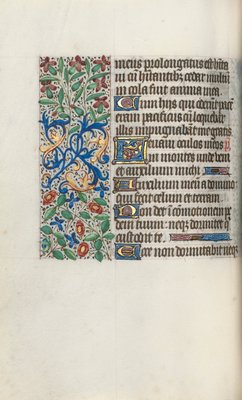 meus prolongatus est habita
ui cū hītantibꝫ cedar multum
incola fuit anima mea.
Cum hijs qui oderunt pacē
eram pacificus cū loquebar
illis impugnabāt me gratis
Leuaui oculos meos
in montes unde veni
et auxilium michi.
Auxilium meū a domino
qui fecit celum et terram.
Non det ī cōmotionem pe
dem tuum: neqꝫ dormitet q
custodit te.
Ecce non dormitabit neqꝫ